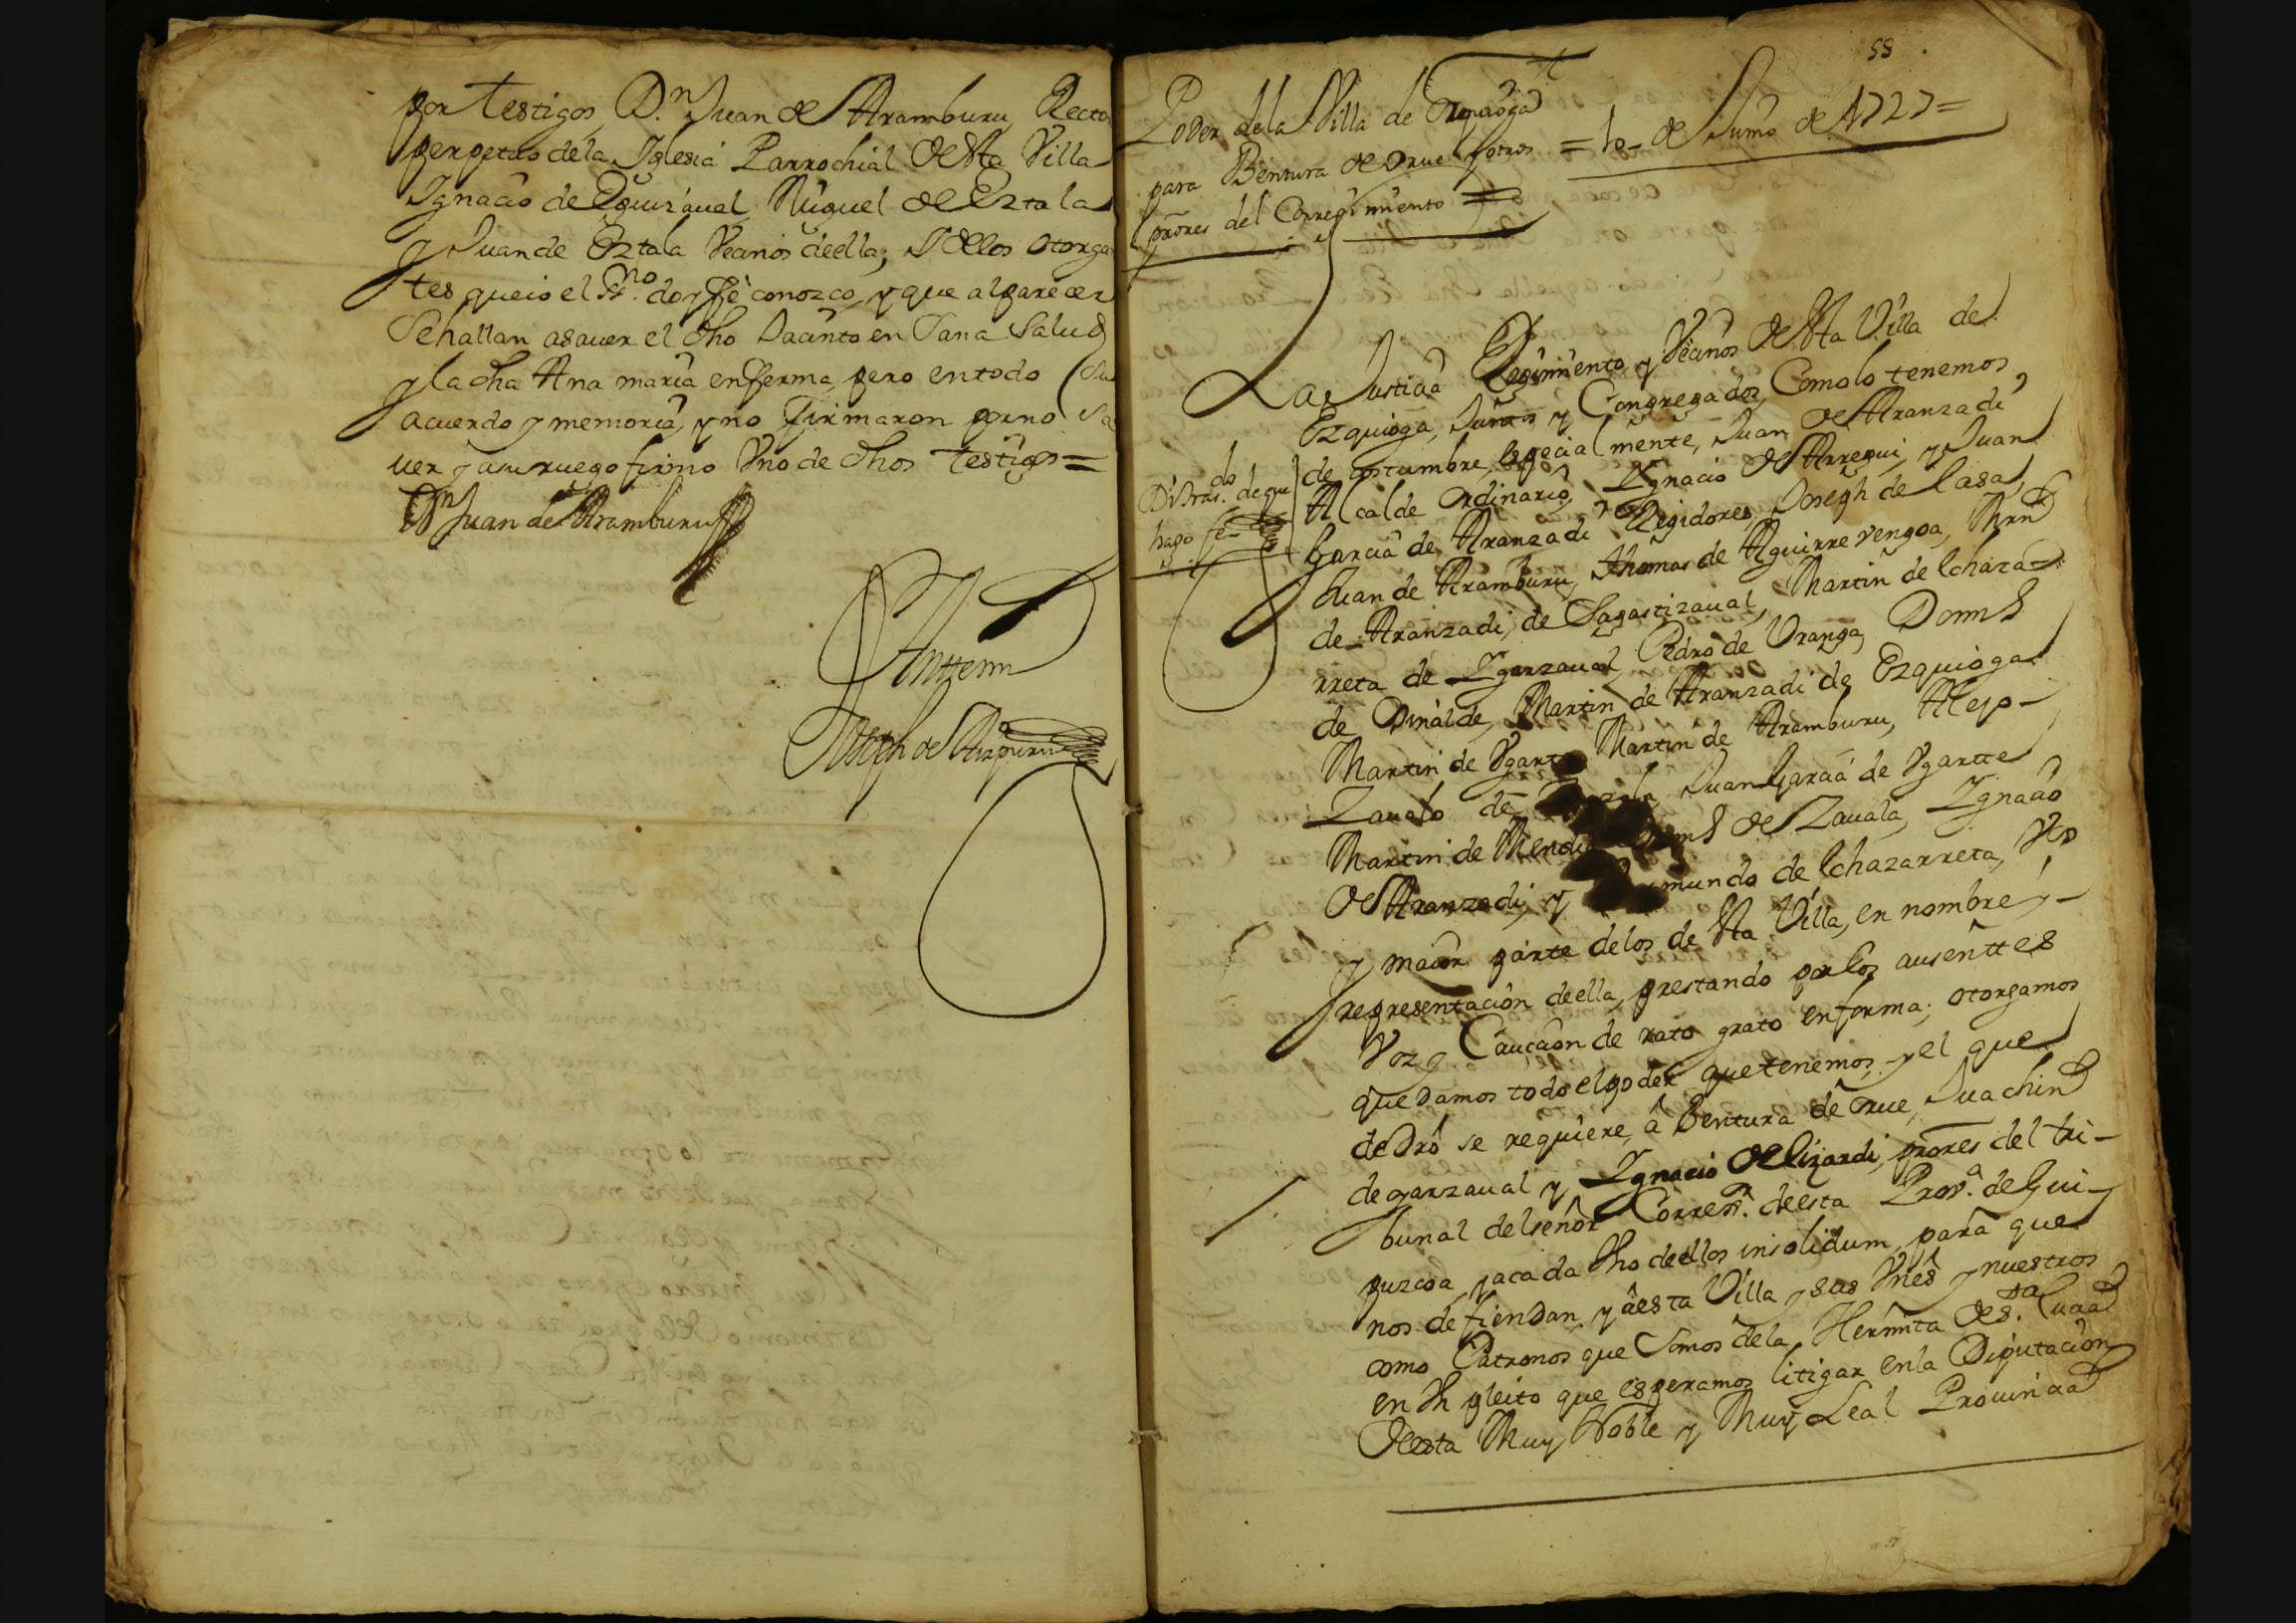 por testigos, D.n Juan de Aramburu, Rector
perpetuo de la Iglesia Parrochial desta Villa
Ygnacio de Eguizaual, Miguel de Eztala
y Juan de Eztala Vecinos de ella; y de los otorgan
tes que io el ss.no doy fe conozco, y que al parecer
se hallan asauer el dho Jacinto en sana salud
y la dha Ana maria enferma, pero en todo su
acuerdo y memoria, y no firmaron por no sa
uer y a su ruego firmo Vno de dhos testigos =
Dn Juan de Aramburu
Antemi
Joseph de Aizpuru
55
Poder de la Villa de Ezquioga
para Bentura de Orue y otros = 10 de Junio de 1727 =
prores del Corregimiento =
La Justicia Regimiento, y Vecinos desta Villa de
Ezquioga, Juntos y Congregados, Como lo tenemos
de costumbre, especialmente, Juan de Aranzadi
Alcalde ordinario, Ygnacio de Arregui, y Juan
Garcia de Aranzadi Regidores, Joseph de lasa,
Juan de Aramburu, Thomas de Aguirrevengoa, Mrn
de Aranzadi, de Sagastizaual, Martin de Echaza-
rreta de Ygarzaual, Pedro de Vranga, Domin
de Oinalde, Martin de Aranzadi de Ezquioga
Martin de Vgarte Martin de Aramburu, Alejo-
Zaualo de Juan Garcia de Vgartte
Martin de de Zauala, Ygnacio
de Aranzadi, y mundo de Echazarreta, Vos
y maior parte de los desta Villa, en nombre y-
representacion de ella, prestando por los ausenttes
Voz y Caucion de rato grato en forma; otorgamos
que damos todo el poder que tenemos, y el que
de dro se requiere, a Bentura de Orue, Juachin
de garzaual y Ygnacio de Elizardi, prores del tri-
bunal del señor Correxr. de esta Prov.a de Gui-
puzcoa, y a cada Vno de ellos insolidum, para que
nos defiendan, y a esta Villa y sus Vnes y nuestros
como Patronos que somos de la Hermita de s.ta lucia
en Vn pleito que esperamos litigar en la Diputacion
desta Muy Noble y Muy Leal Prouincia
hago fe